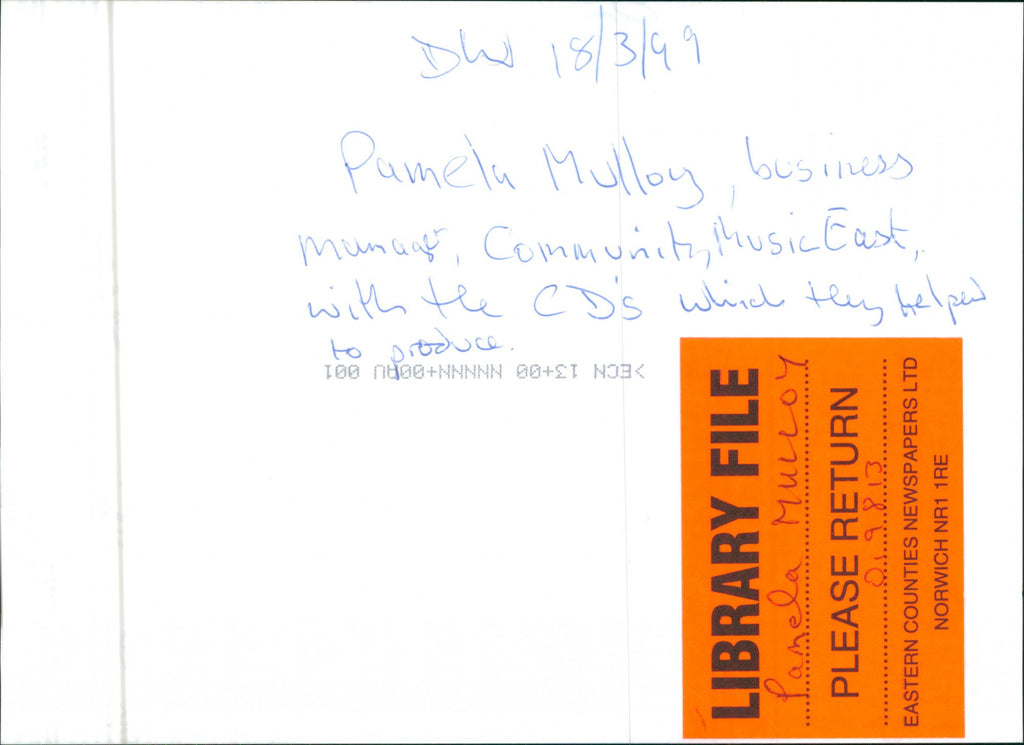 18/3/99
Pamela Mulloy, business
manager, Community Music East,
with the CD's which they helped
to produce.
>ECN 13+00 NNNNN+00AU 001
LIBRARY FILE
Pamela Mulloy
PLEASE RETURN
019813
EASTERN COUNTIES NEWSPAPERS LTD
NORWICH NR1 1RE